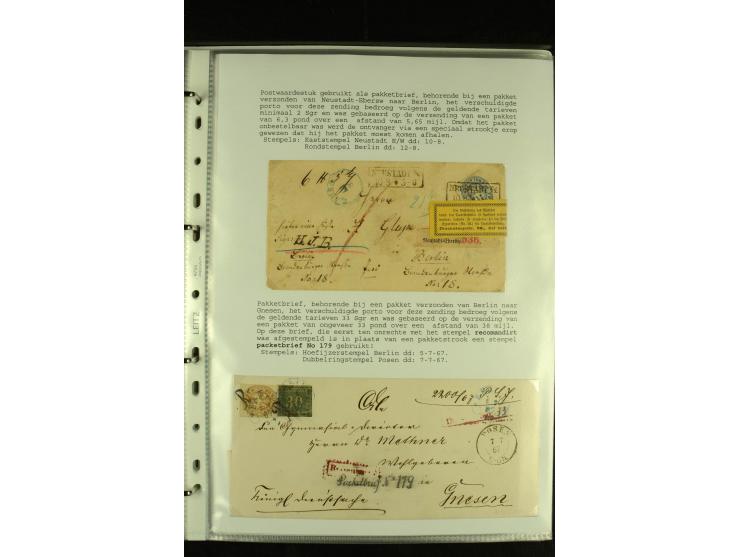 Postwaardestuk gebruikt als pakketbrief, behorende bij een pakket
verzonden van Neustadt-Ebersw naar Berlin, het verschuldigde
porto voor deze zending bedroeg volgens de geldende tarieven
minimaal 2 Sgr en was gebaseerd op de verzending van een pakket
van 6,3 pond over een afstand van 5,65 mijl. Omdat het pakket
onbestelbaar was werd de ontvanger via een speciaal strookje erop
gewezen dat hij het pakket moest komen afhalen.
Stempels: Kaststempel Neustadt E/W dd: 10-8.
Rondstempel Berlin dd: 12-8.
NEUSTADT
10 8 * 5-6
NEUSTADT
H.J.B.
536.
Berlin
Brandenburger Straße
No 18.
Brandenburger Straße
No 18.
Pakketbrief, behorende bij een pakket verzonden van Berlin naar
Gnesen, het verschuldigde porto voor deze zending bedroeg volgens
de geldende tarieven 33 Sgr en was gebaseerd op de verzending van
een pakket van ongeveer 33 pond over een afstand van 38 mijl.
Op deze brief, die eerst ten onrechte met het stempel recomandirt
was afgestempeld is in plaats van een pakketstrook een stempel
packetbrief No 179 gebruikt!
Stempels: Hoefijzerstempel Berlin dd: 5-7-67.
Dubbelringstempel Posen dd: 7-7-67.
30
2200/67
POSEN
7 7
67
Herrn Dr Methner
Wohlgeboren
Packetbrief No 179
in
Gnesen
Königl Dienstsache
LEITZ